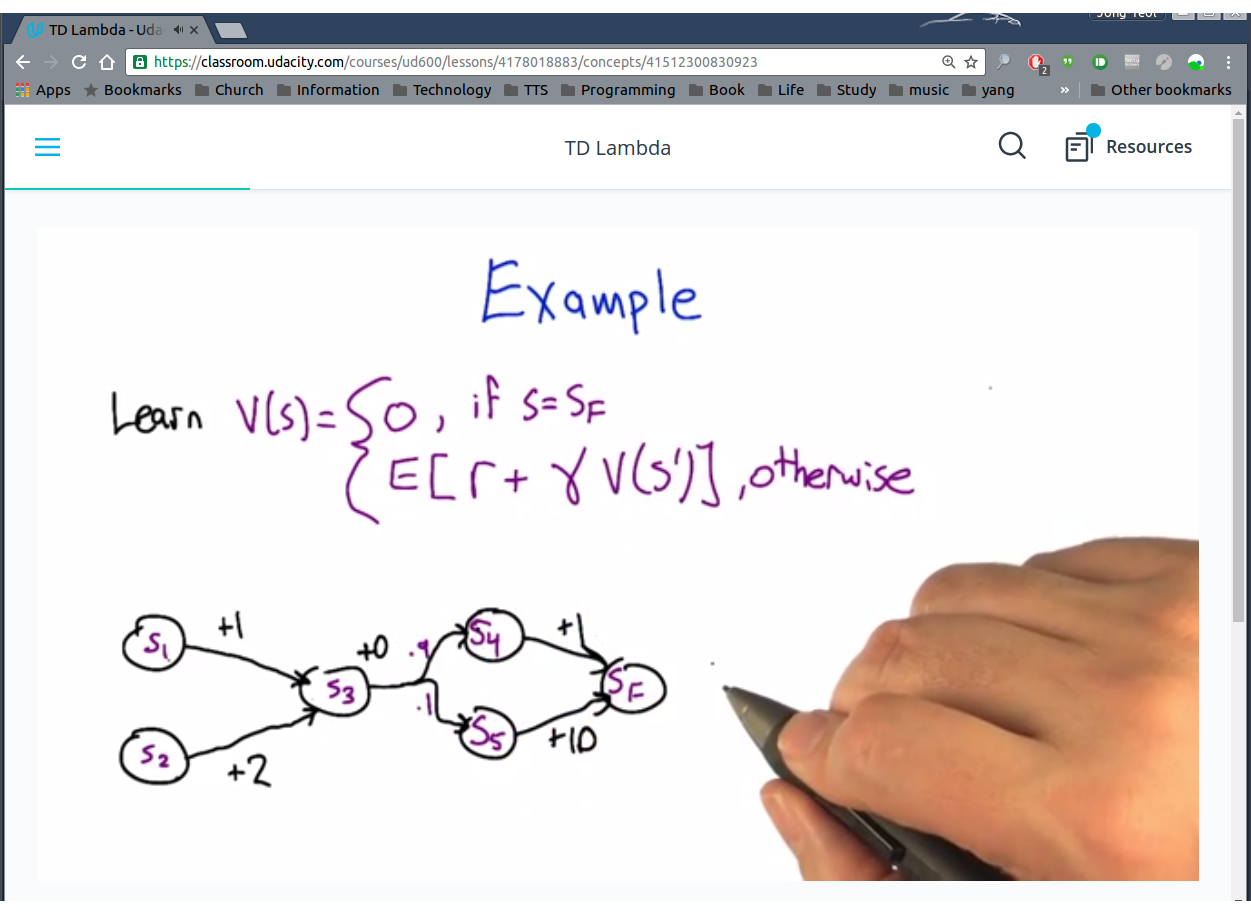 TD Lambda - Uda
https://classroom.udacity.com/courses/ud600/lessons/4178018883/concepts/41512300830923
2
Apps Bookmarks Church Information Technology TTS Programming Book Life Study music yang » Other bookmarks
TD Lambda
Resources
Example
Learn V(s) = { 0, if s = SF
E[r + γ V(s')], otherwise
S1 +1
S3 +0 .9 S4 +1
SF
.1 S5 +10
S2 +2